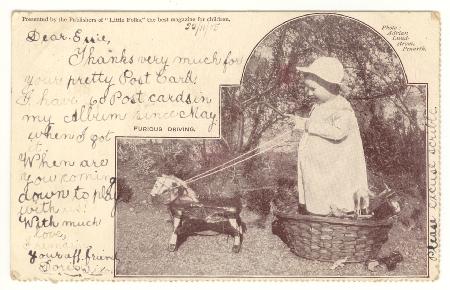 Presented by the Publishers of "Little Folks," the best magazine for children.
Photo:
Adrian
Lund-
Penarth.
Dear Essie,
Thanks very much for
your pretty Post Card.
I have 60 Post cards in
my Album since May
when I got
it.
When are
you coming
down to play
with us?
With much
love,
Your aff. friend
FURIOUS DRIVING.
Please excuse scribble